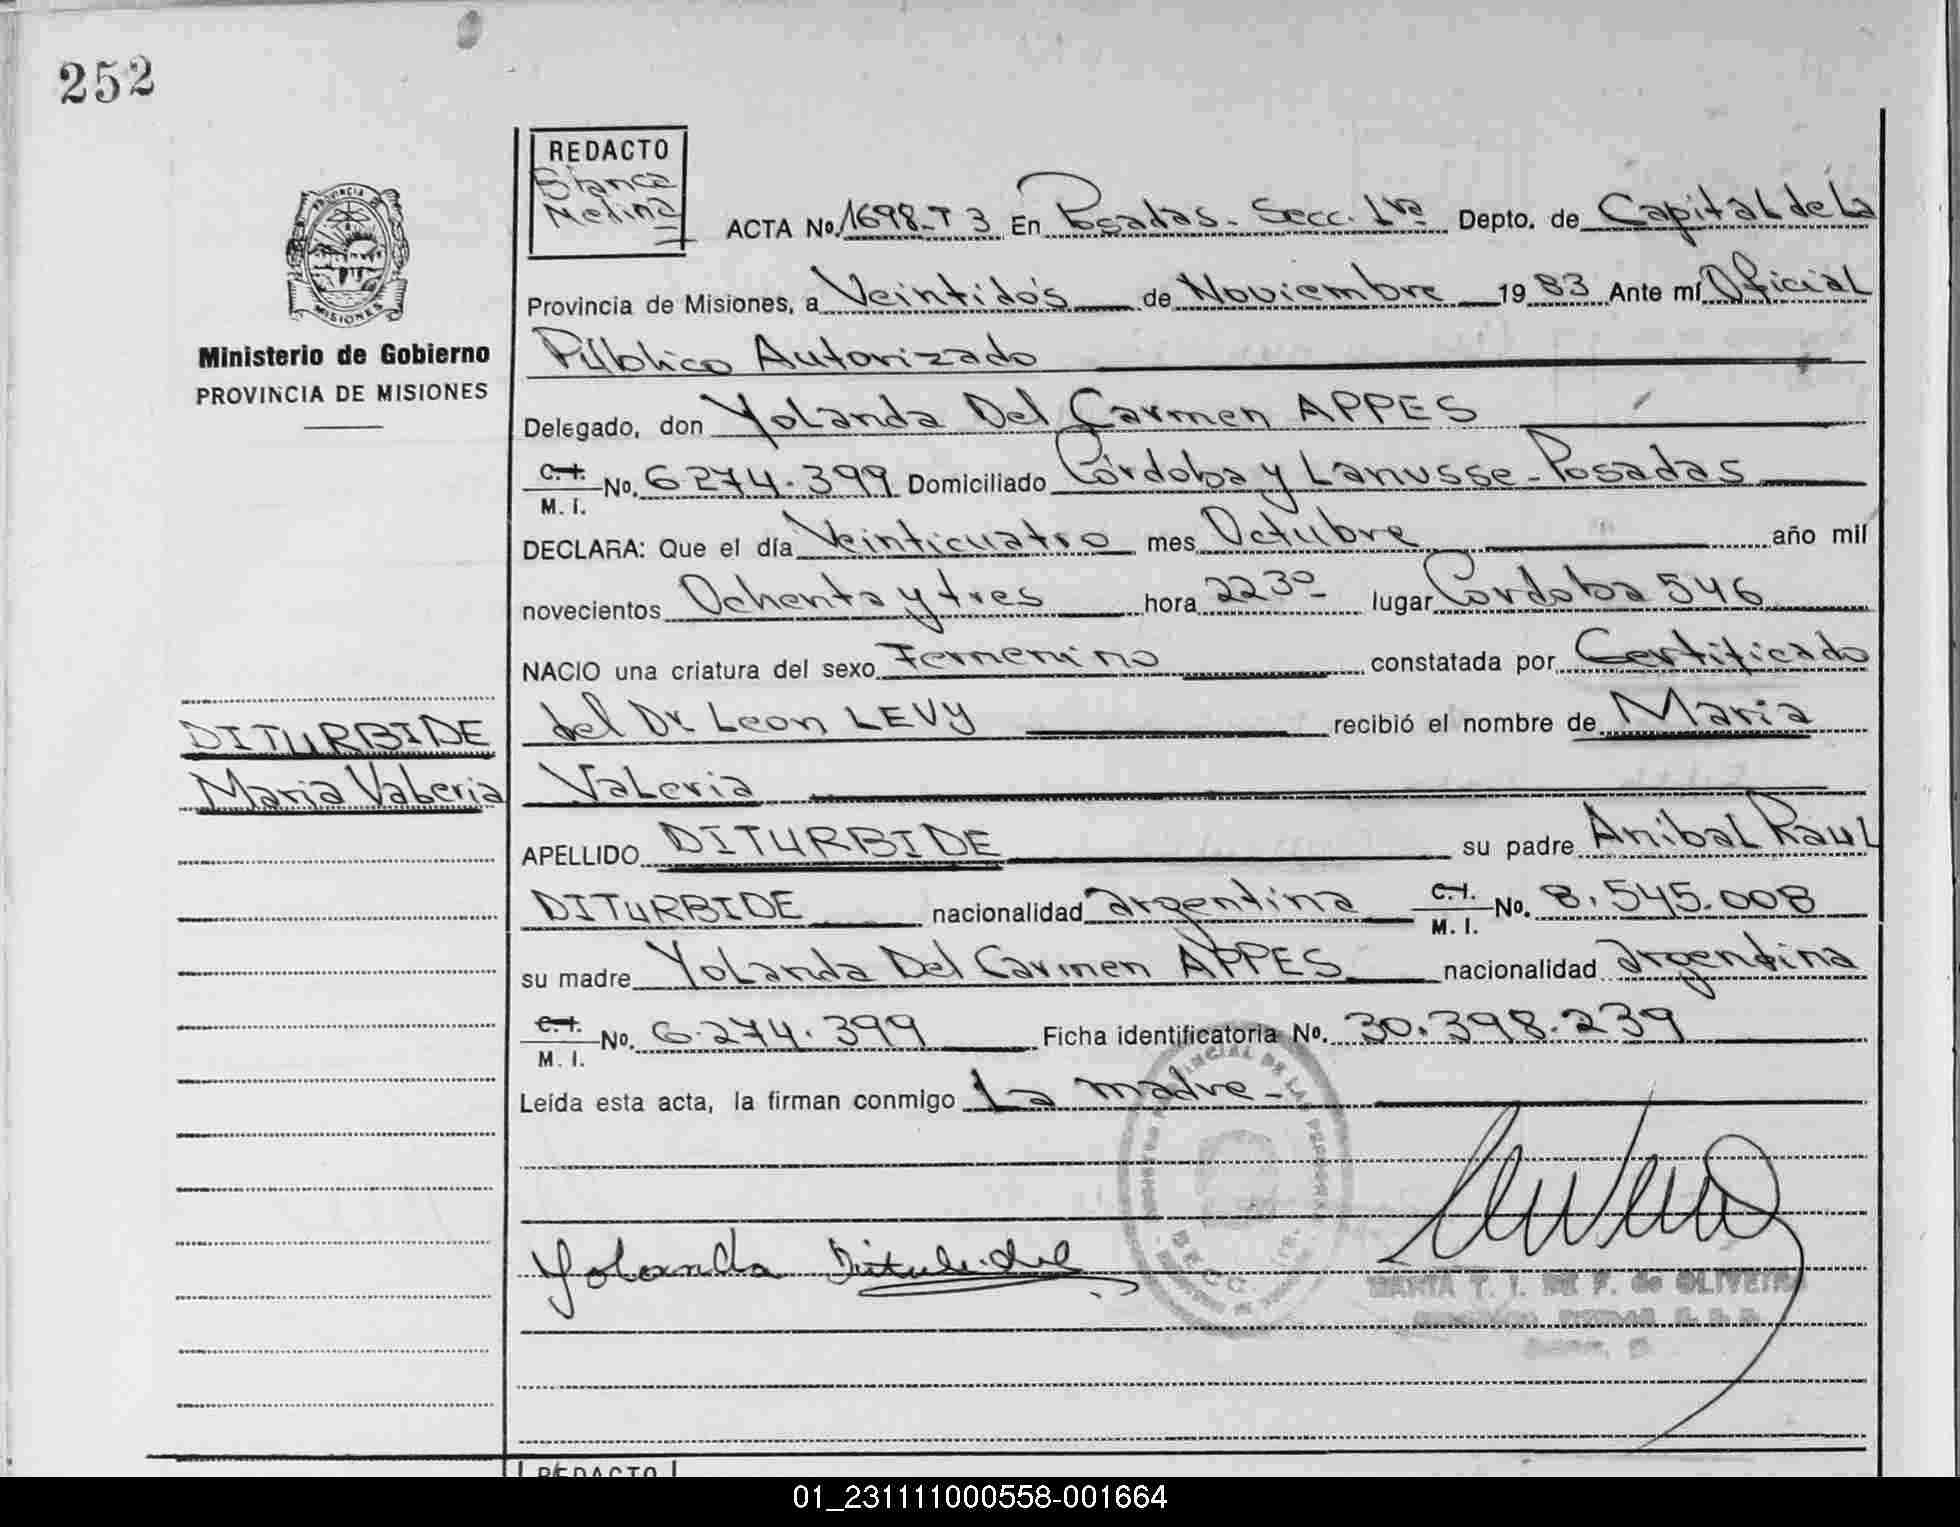 252
REDACTO
Blanca
Medina
PROVINCIA DE
MISIONES
ACTA No. 1698-T 3 En Posadas - Secc. 1ra Depto. de Capital de la
Provincia de Misiones, a Veintidós de Noviembre 1983 Ante mí Oficial
Ministerio de Gobierno
PROVINCIA DE MISIONES
Público Autorizado
Delegado, don Yolanda Del Carmen APPES
C.I.
M. I. No. 6274.399 Domiciliado Córdoba y Lanusse - Posadas
DECLARA: Que el día Veinticuatro mes Octubre año mil
novecientos Ochenta y tres hora 2230 lugar Córdoba 546
NACIO una criatura del sexo Femenino constatada por Certificado
DITURBIDE
Maria Valeria
del Dr Leon LEVY recibió el nombre de Maria
Valeria
APELLIDO DITURBIDE su padre Anibal Raul
DITURBIDE nacionalidad argentina C.I.
M. I. No. 8.545.008
su madre Yolanda Del Carmen APPES nacionalidad argentina
C.I.
M. I. No. 6.274.399 Ficha identificatoria No. 30.398.239
Leída esta acta, la firman conmigo La madre -
Yolanda
DE LAS PERSONAS
SECC. 1ra.
MARTA T. I. DE F. de OLIVEIRA
REDACTO
01_231111000558-001664